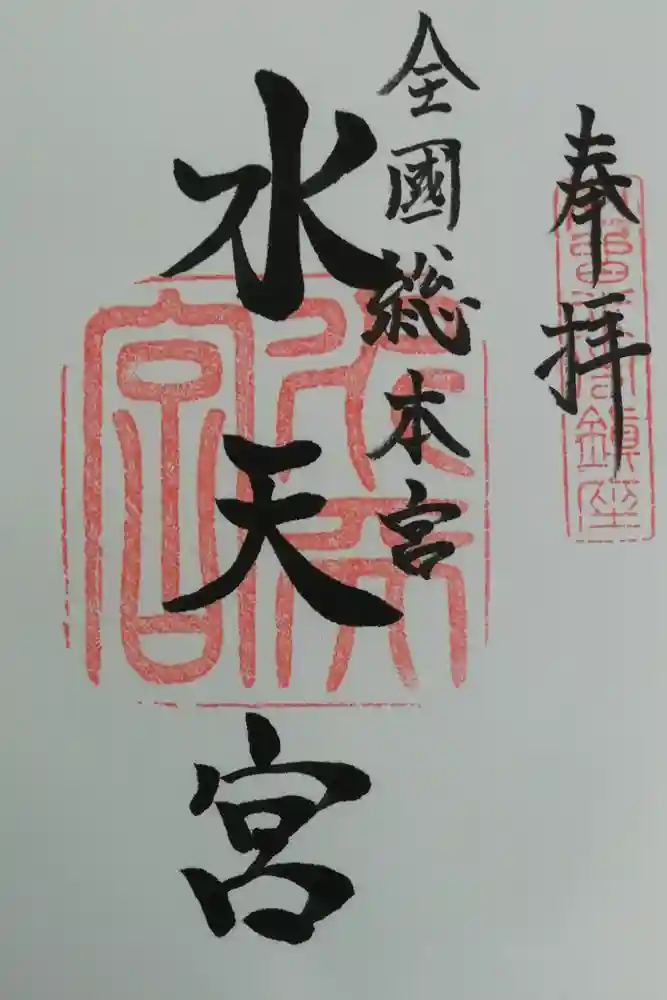 奉拝
全國総本宮
水天宮